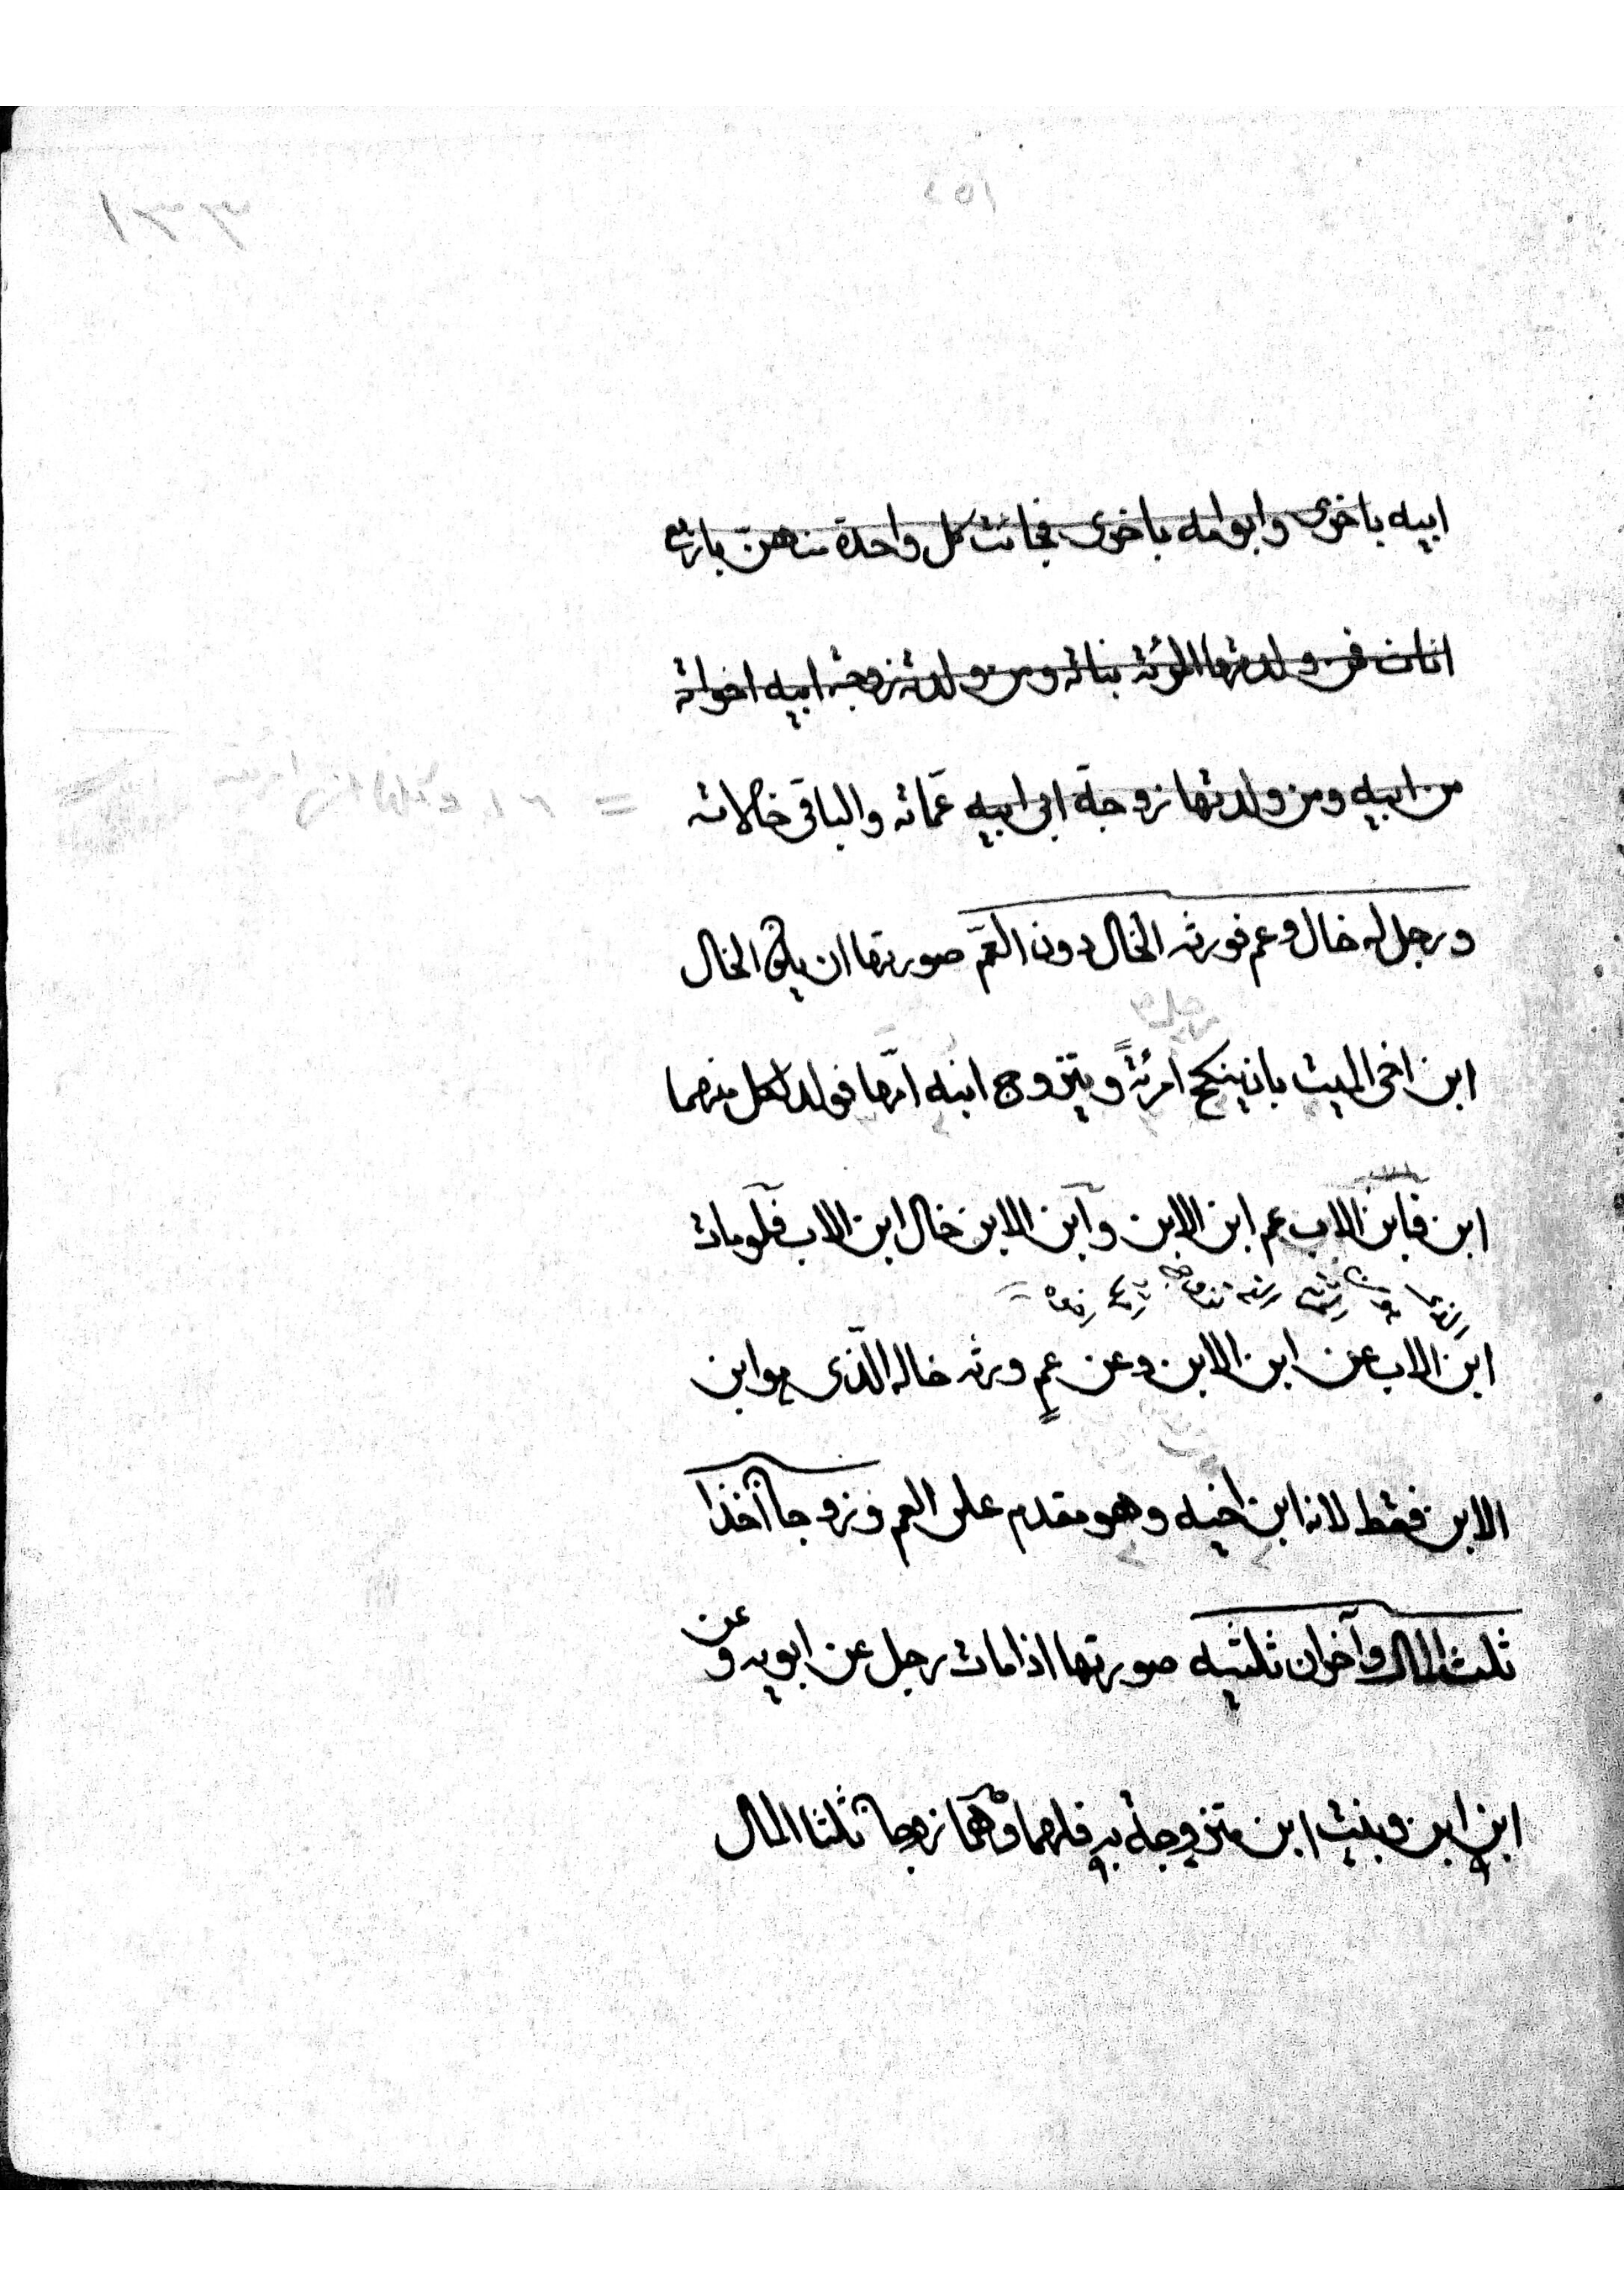 ١٥٤
١٣٣
ابيه باخرى وابو امه باخرى فجائت كل واحدة منهن باربع
اناث فمن ولدتها المرئة بناته ومن ولدته زوجة ابيه اخواته
من ابيه ومن ولدتها زوجة ابى ابيه عمّاته والباقى خالاته
ورجل له خال وعم فورثه الخال دون العمّ صورتها ان يكون الخال
ابن اخى الميت بان ينكح امرئةً ويتزوج ابنه امّها فولد لكل منهما
ابن فابن الاب عم ابن الابن وابن الابن خال ابن الاب فلو مات
ابن الاب عن ابن الابن وعن عمٍ ورثه خاله الّذى هو ابن
الابن فقط لانه ابن اخيه وهو مقدم على العم وزوجا اخذا
ثلث المال وآخران ثلثيه صورتها اذا مات رجل عن ابويه وعن
ابن ابن وبنت ابن متزوجة به فلهما وهما زوجا ثلثا المال